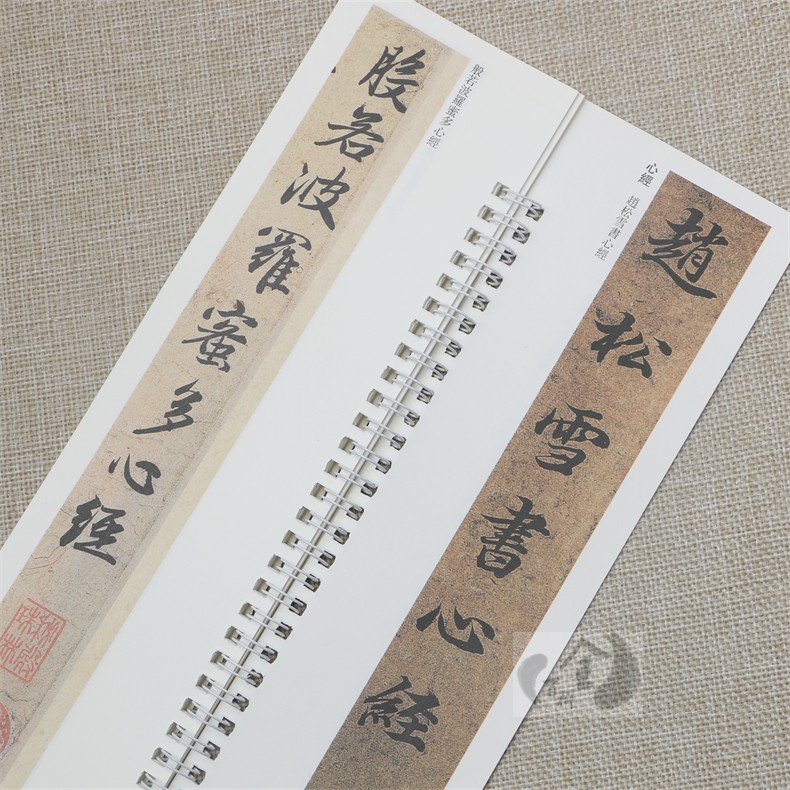 心經 趙松雪書心經
趙松雪書心經
般若波羅蜜多心經
般若波羅蜜多心經